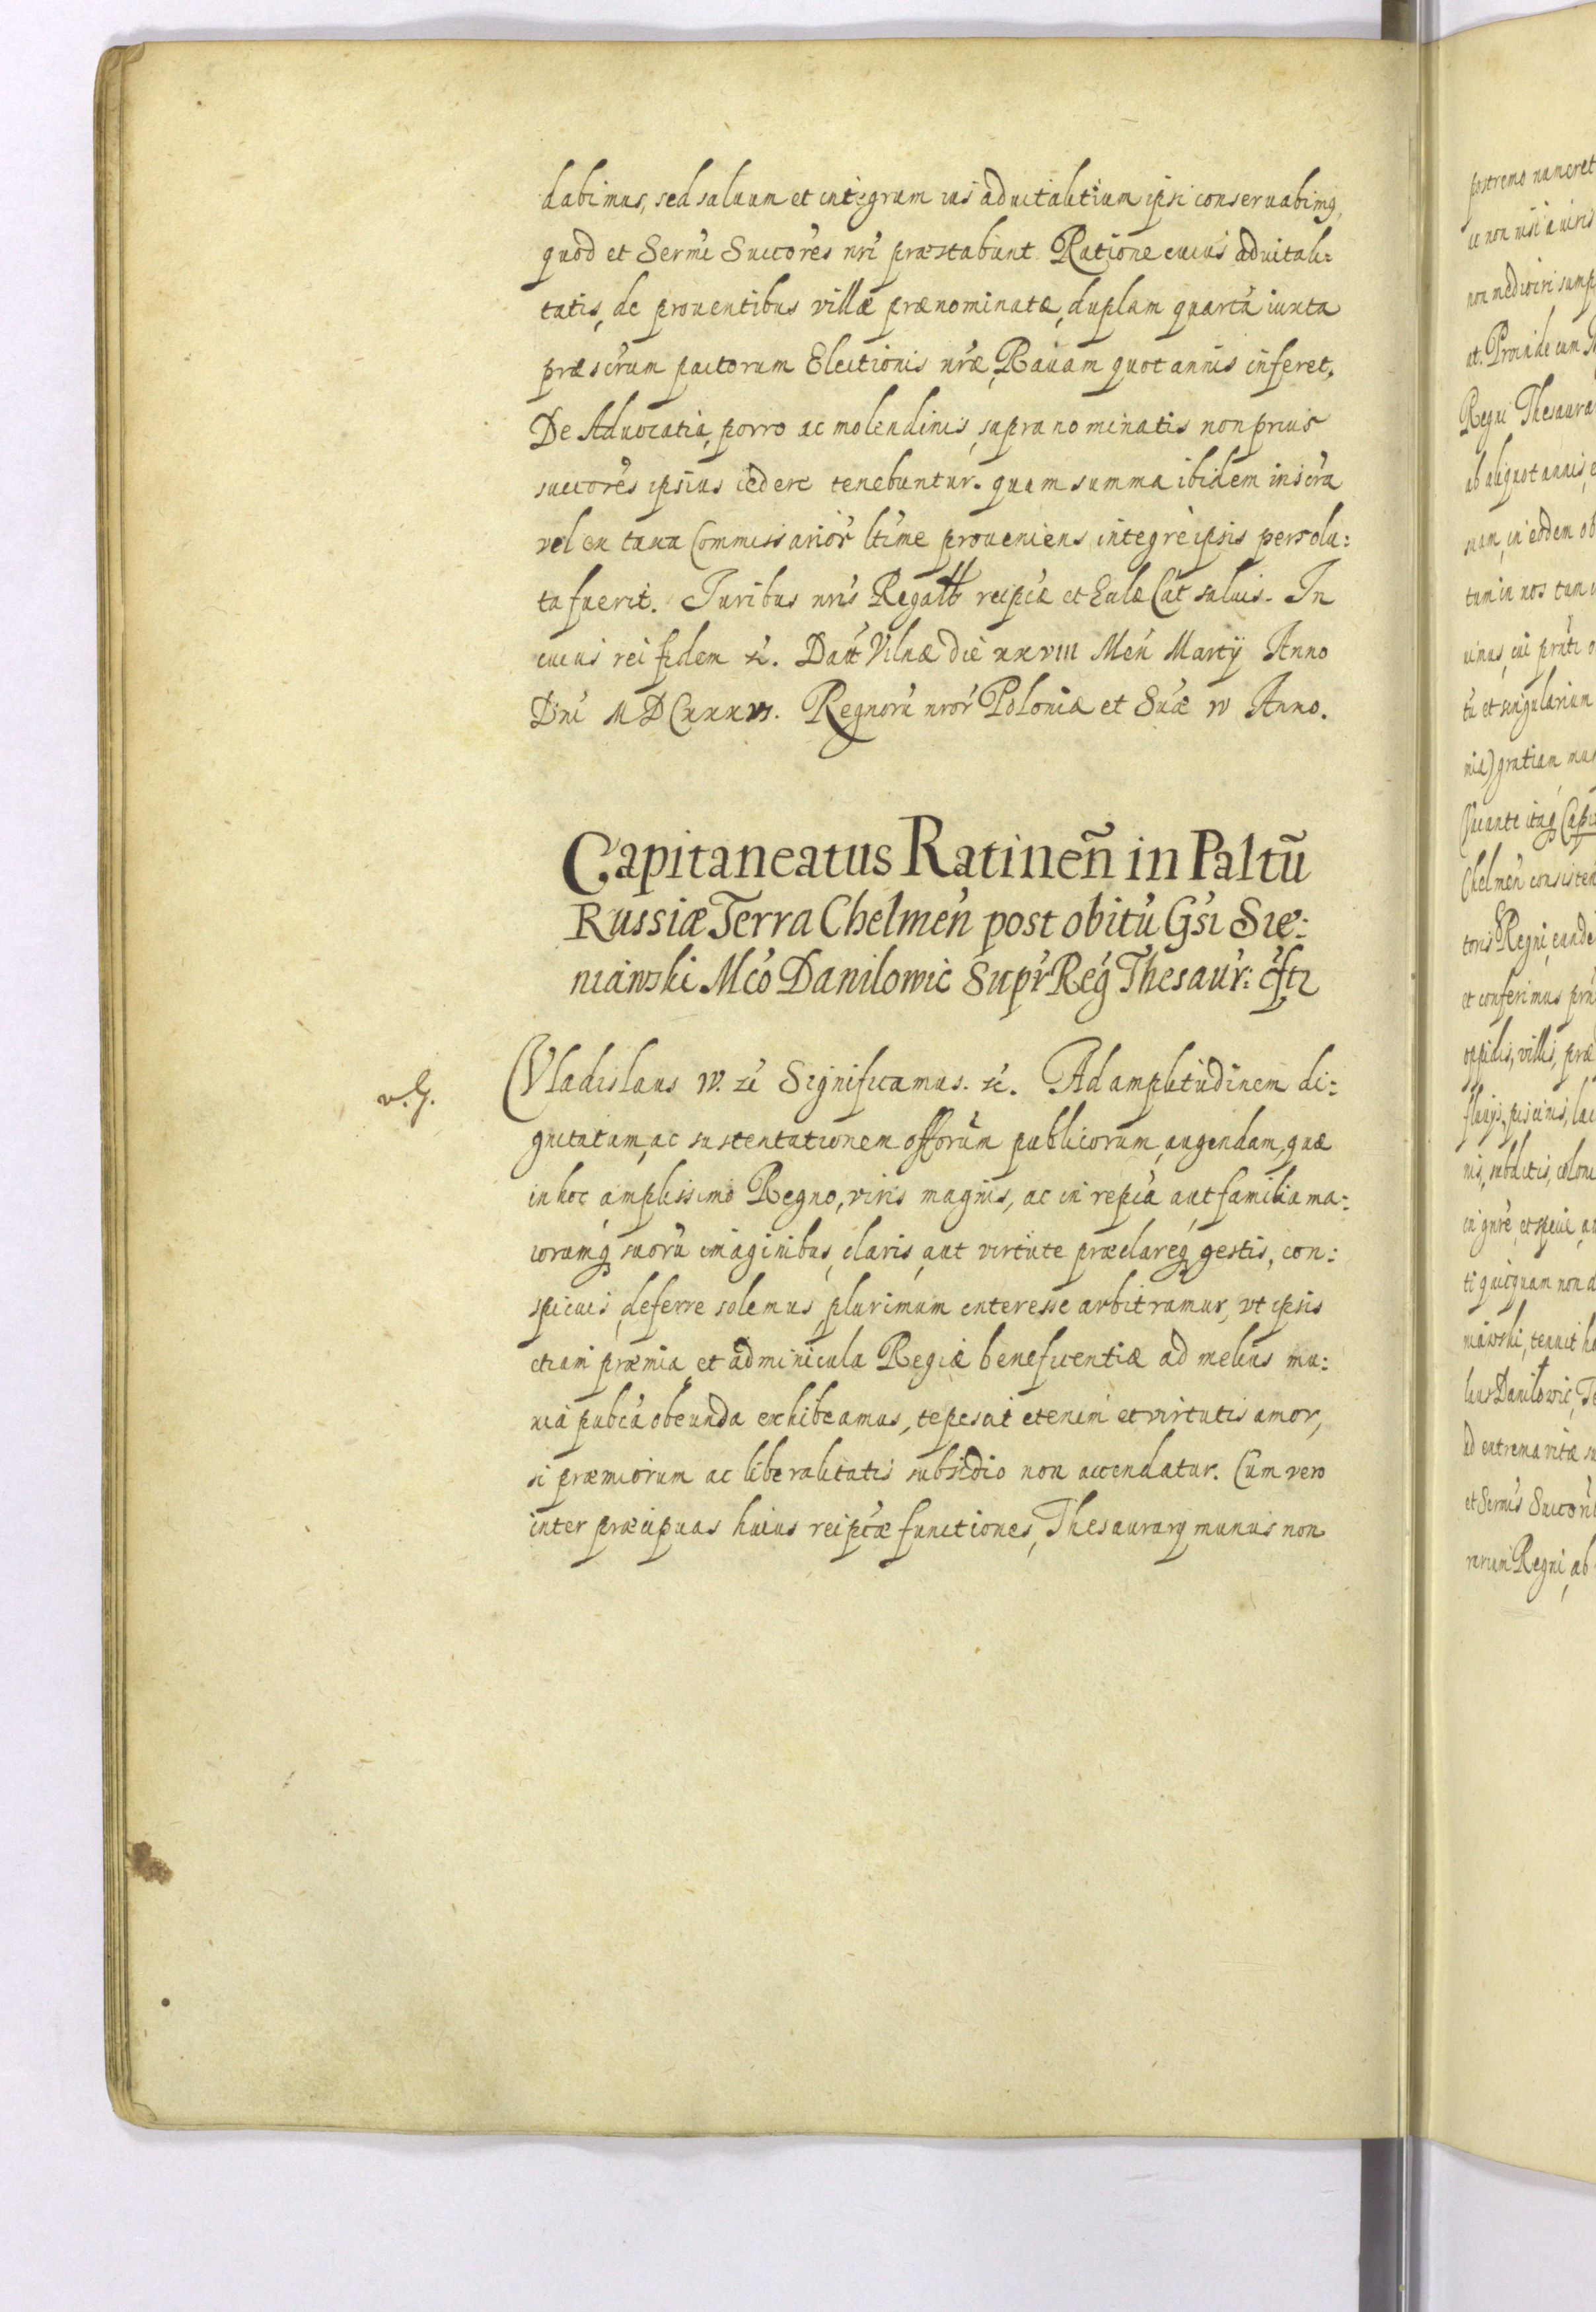 dabimus, sed saluum et integrum ius aduitalitium ipsi conseruabimq,
quod et Sermi Succores nri præstabunt Ratione cuius aduitali:
tatis, de prouentibus villæ prænominatæ, duplam quartã iuxta
præscrum pactorum Electionis nræ, Rauam quotannis inferet,
De Aduocatia, porro ac molendinis, supra nominatis non prius
succores ipsius cedere tenebuntur. quam summa ibidem inscra
vel ex taxa Commissarior ltime proueniens integre ipsis persolu:
ta fuerit. Iuribus nris Regalib reipcæ et Eclæ Cat saluis. In
cuius rei fidem &c. Datt Vilnæ die xxviii Men Martÿ Anno
Dni MDCxxxvi. Regnorũ nror Poloniæ et Suæ iv Anno.
Capitaneatus Ratineñ in Paltũ
Russiæ Terra Chelmeń post obitũ Gsi Sie:
niawski Mco Danilowic Supr Reg Thesaur: cftr
v. g.
Vladislaus iv. &c Significamus. &c. Ad amplitudinem di:
gnitatum, ac sustentationem offorũm publicorum, augendam, quæ
in hoc amplissimo Regno, viris magnis, ac in repca aut familia ma:
iorumq suorũ imaginibus, claris, aut virtute præclareq gestis, con:
spicuis, deferre solemus, plurimum interesse arbitramur, vt ipsis
etiam præmia, et adminicula Regiæ beneficentiæ ad melius mu:
nia pubca obeunda exhibeamus, tepescit etenim et virtutis amor,
si præmiorum ac liberalitatis subsidio non accendatur. Cum vero
inter præcipuas huius reipcæ functiones, Thesaurarÿ munus non
postremo numeret
non mediocri sump
at. Proinde cum
Regni Thesaura
ab aliquot annis, e
suam, in eodem ob
tum in nos tum
uimus, cui prati
tũ et singularium
nia) gratiam, mu
Vacante itaq Capi
Chelmeń consisten
toris Regni, eande
et conferimus
oppidis, villis, præ
fluuÿs, piscinis, lac
nis, subditis, colon
in gnre, et specie, a
ti quicquam non
niawski, tenuit h
lius Danilowic, T
ad extrema vitæ su
et Sermis Succori
rarum Regni, ab